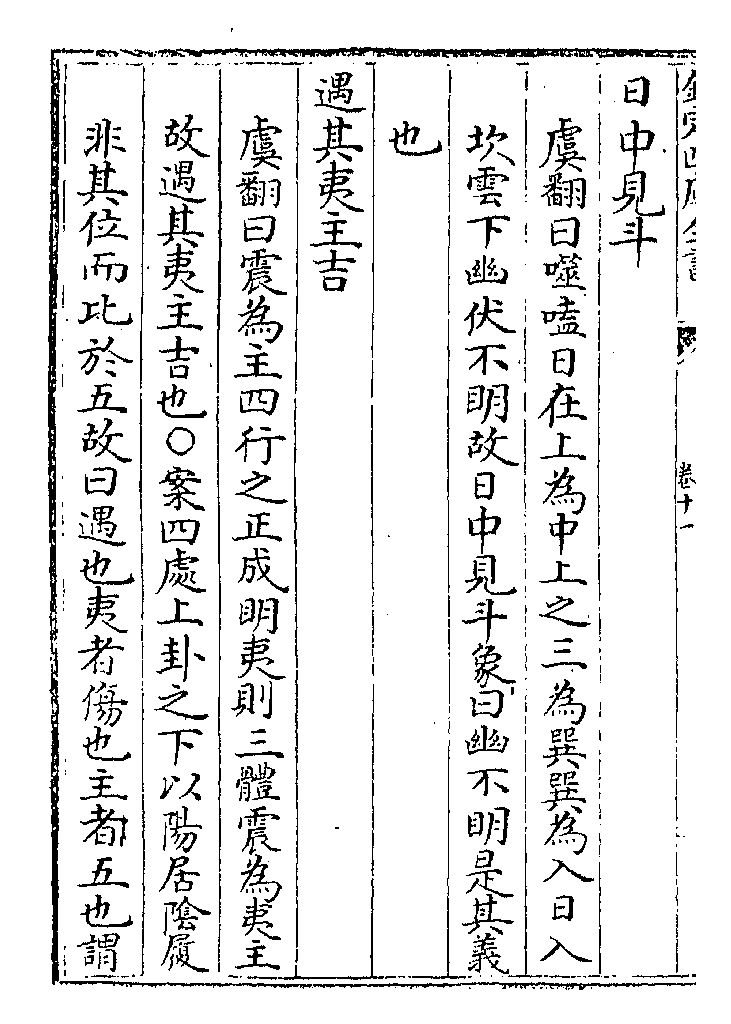 欽定四庫全書
卷十一
日中見斗
虞翻曰噬嗑日在上為中上之三為巽巽為入日入
坎雲下幽伏不明故日中見斗象曰幽不明是其義
也
遇其夷主吉
虞翻曰震為主四行之正成明夷則三體震為夷主
故遇其夷主吉也○案四處上卦之下以陽居陰履
非其位而比於五故曰遇也夷者傷也主者五也謂